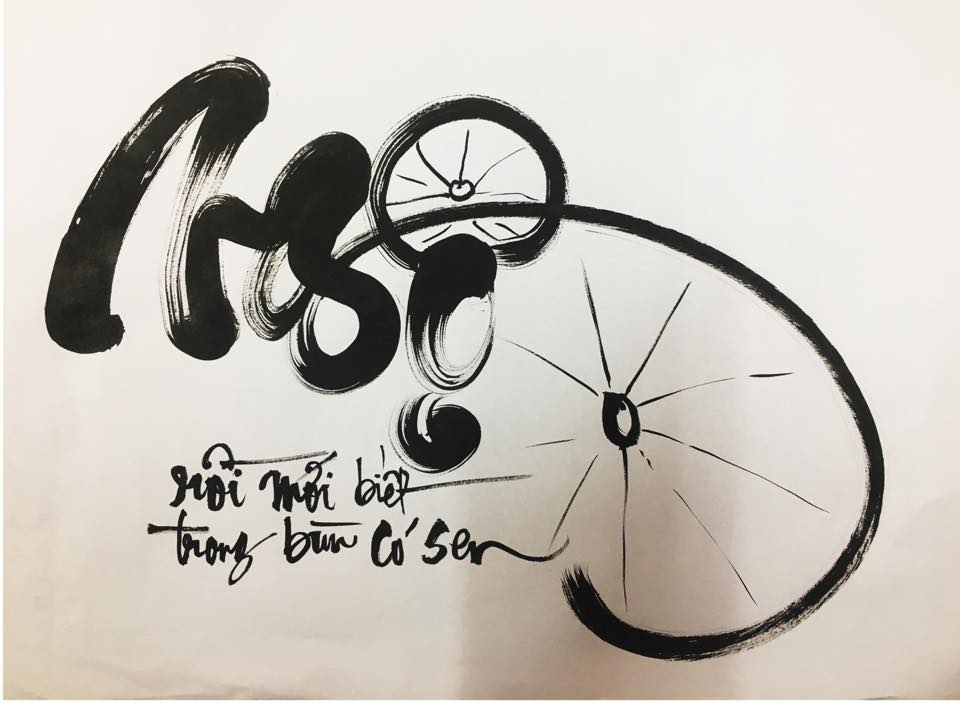 Ngộ
rồi mới biết
trong bùn có sen